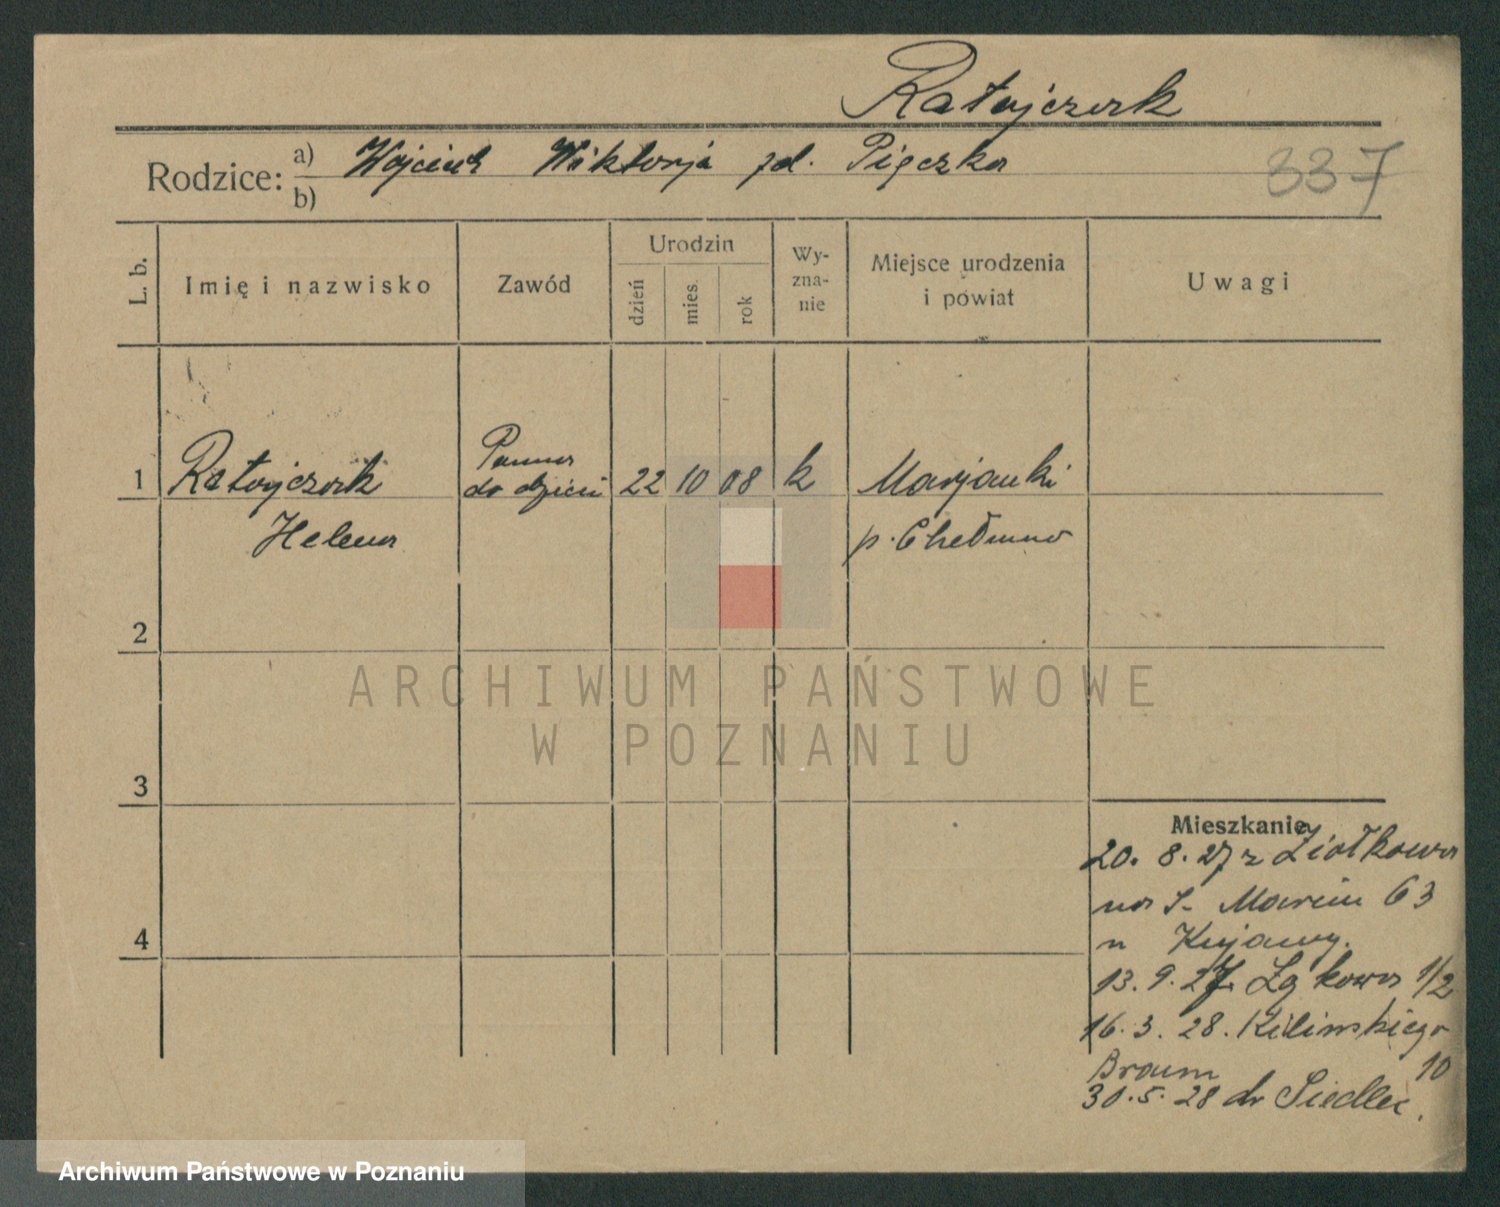 Ratajczak
Rodzice: a) Wojciech Wiktorja zd. Pięczka
b)
337
L. b.
Imię i nazwisko
Zawód
Urodzin
dzień
mies.
rok
Wy-
zna-
nie
Miejsce urodzenia
i powiat
Uwagi
1 Ratajczak
Helena
Panna
do dzieci
22 10 08 k
Marjanki
p. Chełmno
2
3
4
ARCHIWUM PAŃSTWOWE
W POZNANIU
Mieszkanie
20. 8. 27 z Ziołkowa
na Ś. Marcin 63
u Kujawy.
13. 9. 27. Łąkowa 1/2
16. 3. 28. Kilinskiego
Braum 10
30. 5. 28 do Siedlec.
Archiwum Państwowe w Poznaniu